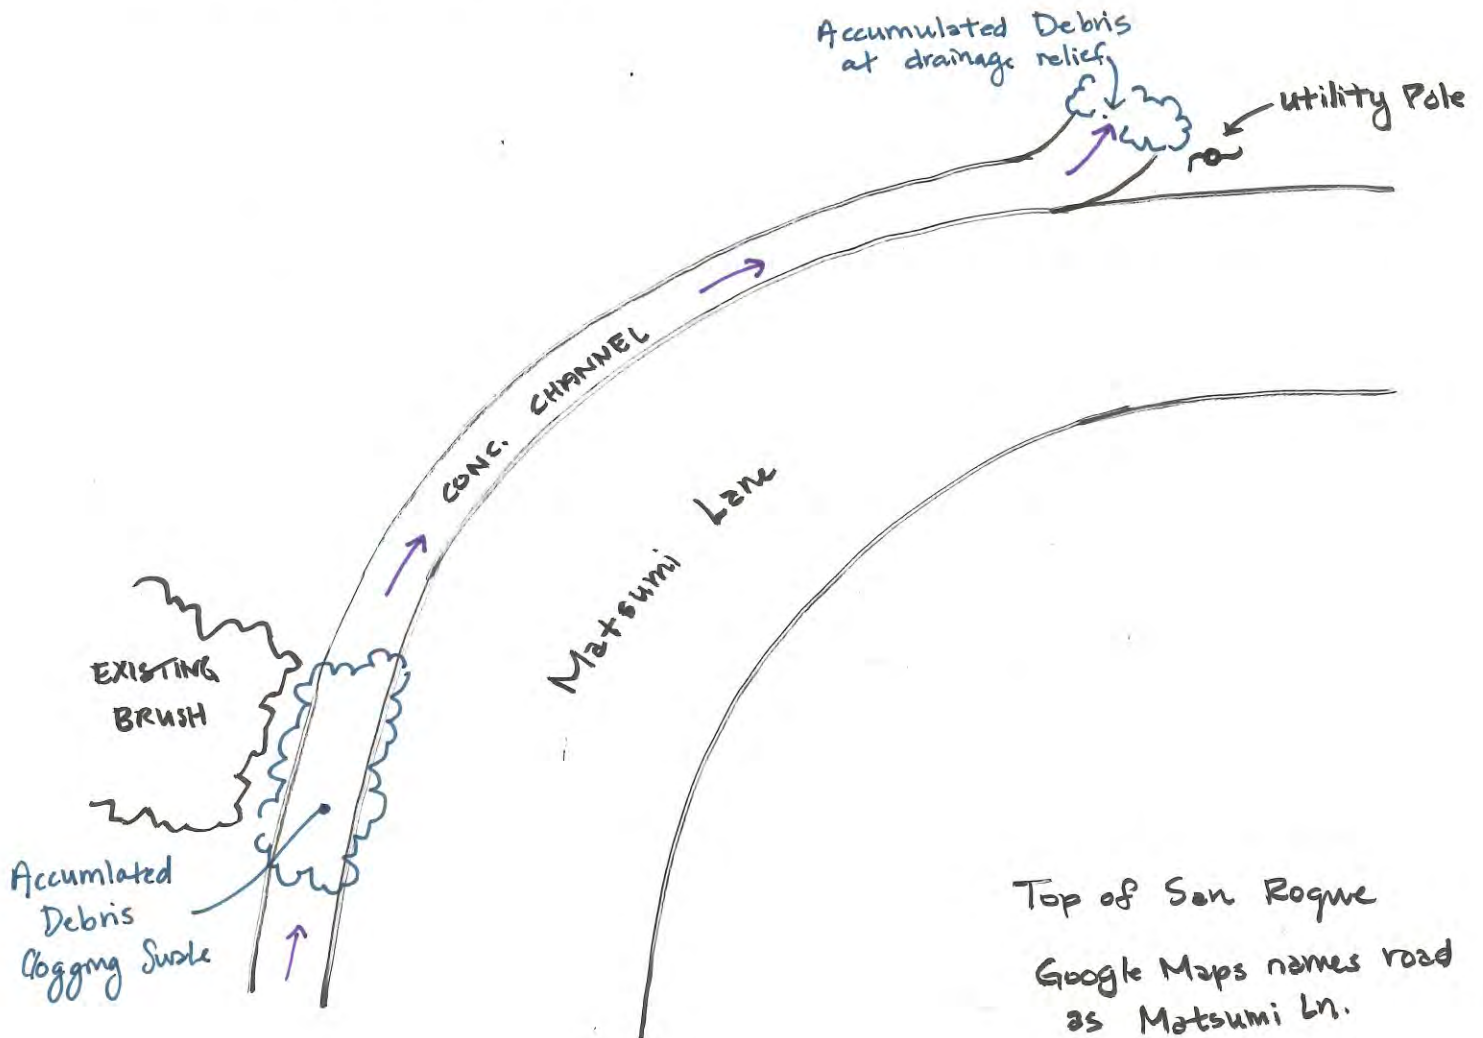 Accumulated Debris
at drainage relief
utility Pole
CONC. CHANNEL
Matsumi Lane
EXISTING
BRUSH
Accumlated
Debris
Clogging Swale
Top of San Roque
Google Maps names road
as Matsumi Ln.